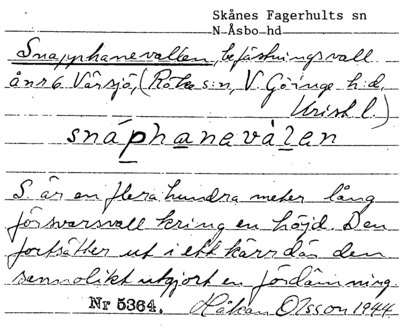 Skånes Fagerhults sn
N Åsbo hd
Snapphanevallen, befästningsvall
å nr 6 Vårsjö, (Röke s:n, V. Göinge h:d,
Krist l.)
snáphanevàlen
S är en flera hundra meter lång
försvarsvall kring en höjd. Den
fortsätter ut i ett kärr där den
sannolikt utgjort en fördämning.
Nr 5364. Håkan Olsson 1944.